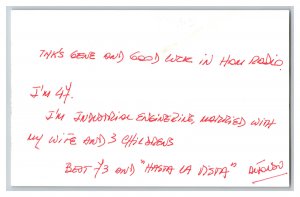 TNK'S GENE AND GOOD LUCK IN HAM RADIO.
I'M 47.
I'M INDUSTRIAL ENGINEERING, MARRIED WITH
MY WIFE AND 3 CHILDRENS
BEST 73 AND "HASTA LA VISTA"